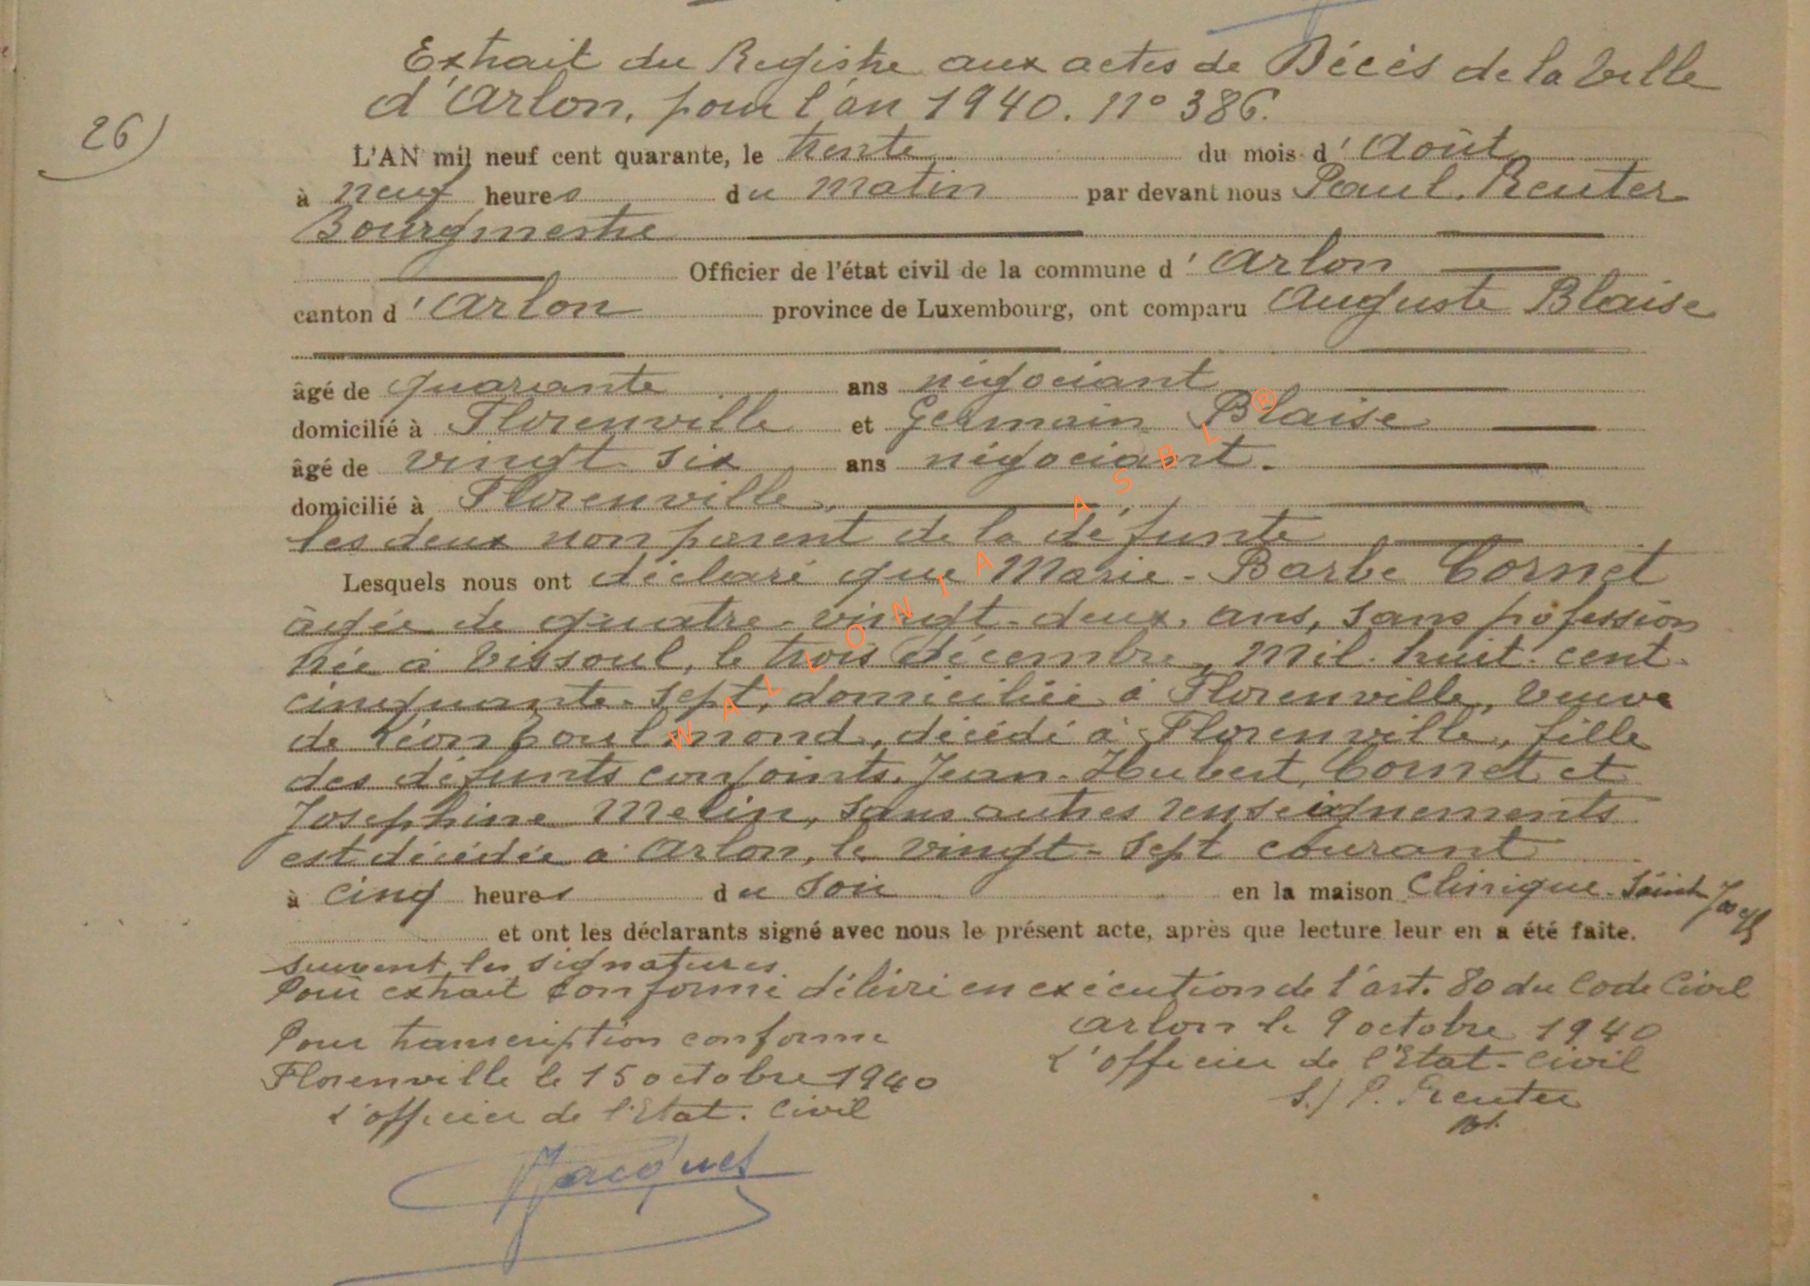 Extrait du Registre aux actes de Décès de la Ville
d'Arlon, pour l'an 1940. N° 386.
26)
L'AN mil neuf cent quarante, le trente du mois d'Août
à neuf heures du matin par devant nous Paul. Reuter
Bourgmestre
Officier de l'état civil de la commune d'Arlon
canton d'Arlon province de Luxembourg, ont comparu Auguste Blaise
âgé de quarante ans négociant
domicilié à Florenville et Germain Blaise
âgé de vingt six ans négociant.
domicilié à Florenville,
les deux non parent de la défunte
Lesquels nous ont déclaré que Marie-Barbe Cornet
âgée de quatre-vingt-deux ans, sans profession
née à Vissoul, le trois décembre, mil huit cent
cinquante-sept, domiciliée à Florenville, veuve
de Léon, décédé à Florenville, fille
des défunts conjoints Jean-Hubert Cornet et
Josephine Melin, sans autres renseignements
est décédée à Arlon, le vingt-sept courant
à cinq heures du soir en la maison Clinique Saint Joseph
et ont les déclarants signé avec nous le présent acte, après que lecture leur en a été faite.
suivent les signatures.
Pour extrait conforme délivré en exécution de l'art. 80 du Code Civil
Arlon le 9 octobre 1940
L'officier de l'Etat-Civil
s./ P. Reuter
Pour transcription conforme
Florenville le 15 octobre 1940
L'officier de l'Etat-Civil
Jacques
WALLONIA ASBL ®